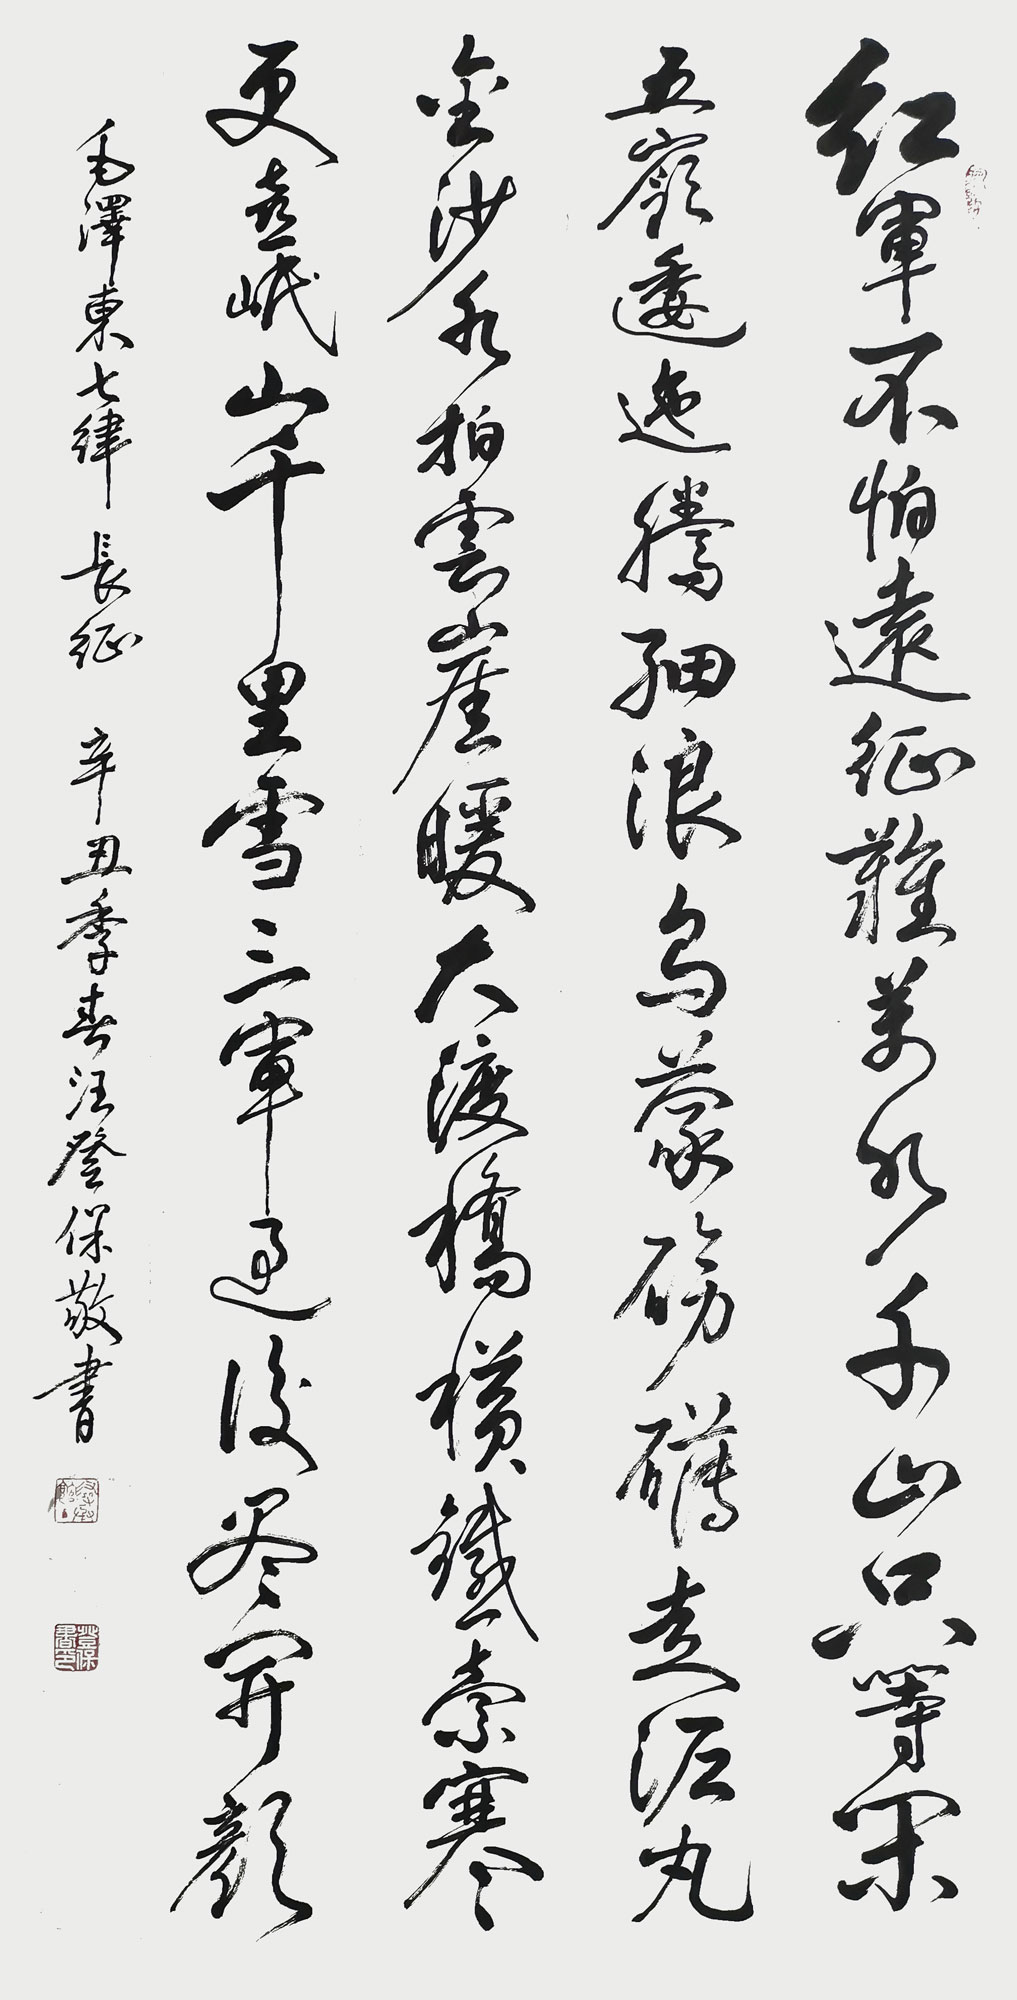 紅軍不怕遠征難萬水千山只等閑
五嶺逶迤騰細浪烏蒙磅礴走泥丸
金沙水拍雲崖暖大渡橋橫鐵索寒
更喜岷山千里雪三軍過後尽開顏
毛澤東七律長征 辛丑季春汪登保敬書
登保書印